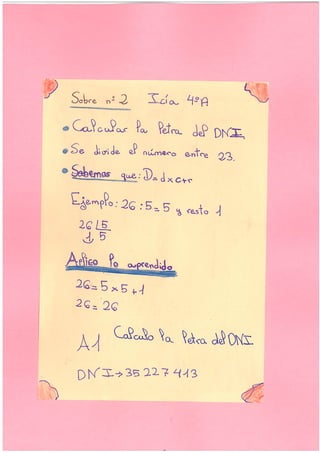 Sobre nº 2 Icía 4ºA
• Calcular la letra del DNI
• Se divide el número entre 23.
• Sabemos que: D=dxc+r
Ejemplo: 26:5=5 y resto 1
26 |5
1 5
Aplico lo aprendido
26=5x5+1
26=26
A1 Calculo la letra del DNI
DNI→35227413